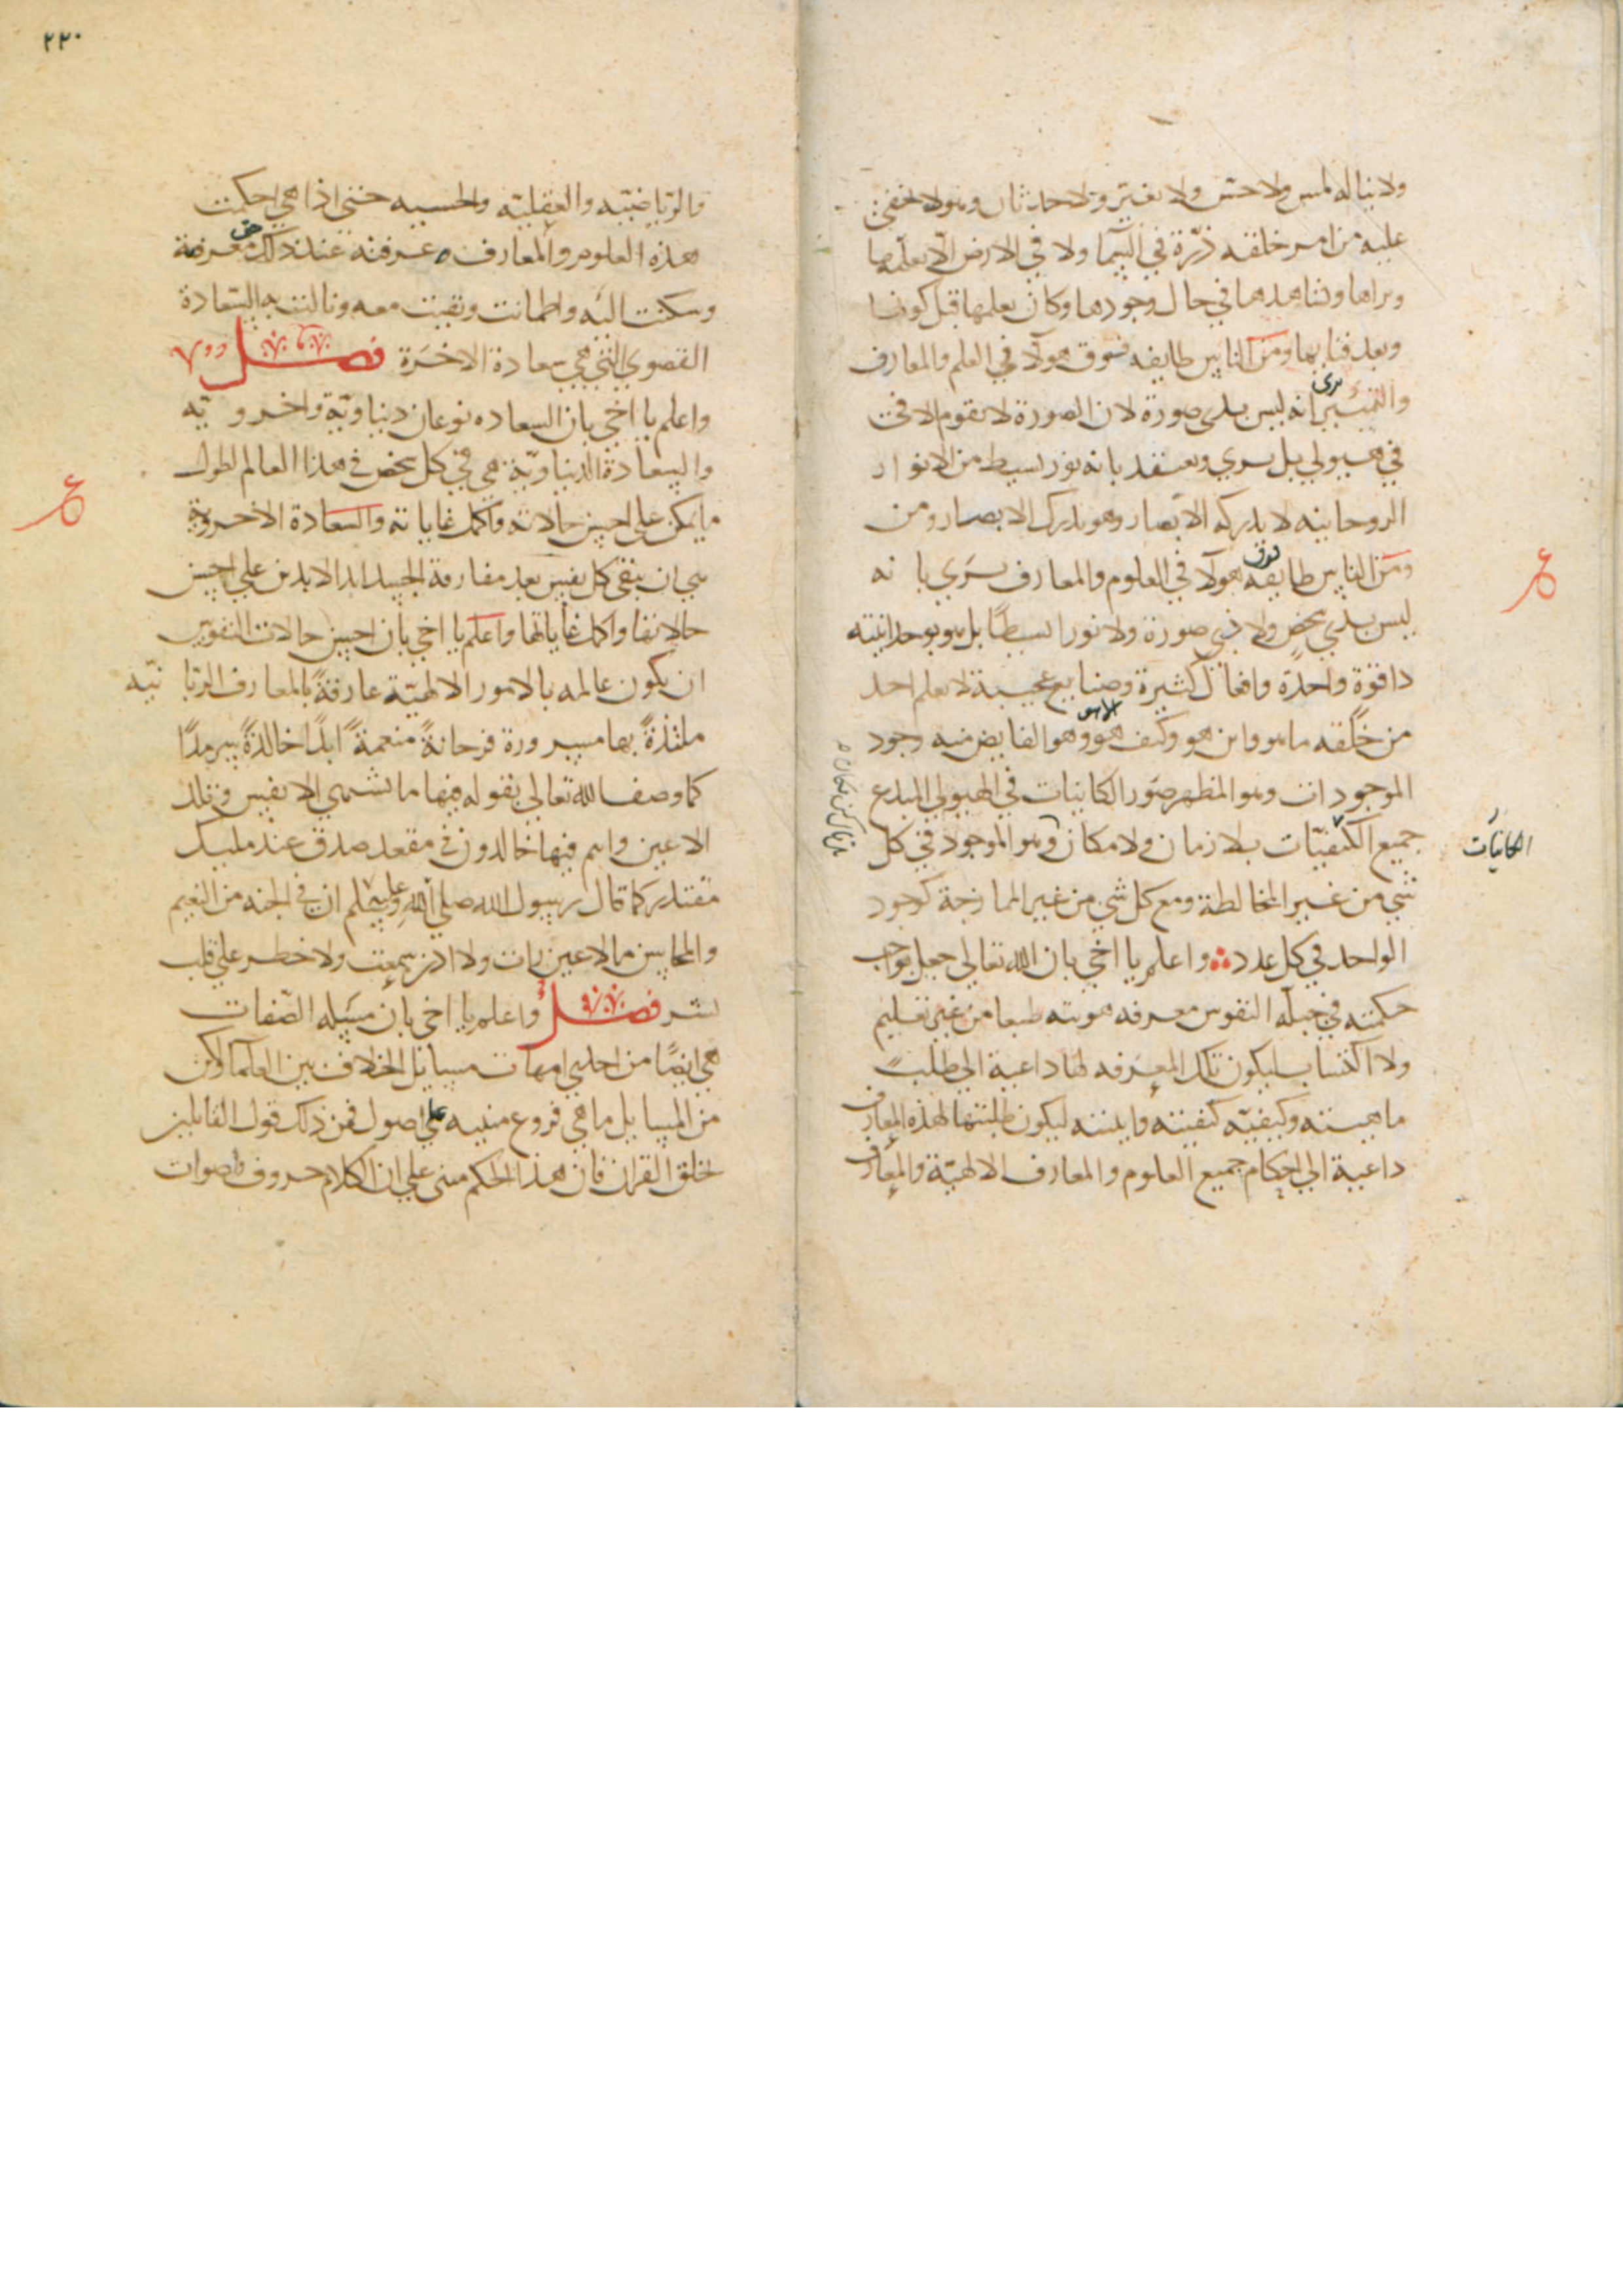 ولا يناله لمس ولا حس ولا تغير ولا حدثان وهو لا يخفى
عليه من امر خلقه ذرة في السما ولا في الارض الا يعلمها
ويراها ويشاهدها في حال وجودها وكان يعلمها قبل كونها
وبعد فنايها ومن الناس طايفه فوق هولا في العلم والمعارف
والتمييز يرى انه ليس بذي صورة لان الصورة لا تقوم الا في
في هيولي بل يري ويعتقد بانه نور بسيط من الانوار
الروحانيه لا تدركه الابصار وهو يدرك الابصار ومن
ومن الناس طايفه فوق هولا في العلوم والمعارف يرى بانه
ليس بذي شخص ولا ذي صورة ولا نورا بسيطا بل هو بوحدانيته
ذا قوة واحدة وافعال كثيرة وصنايع عجيبة لا يعلم احد
من خلقه ما هو واين هو وكيف هو الا هو وهو الفايض منه وجود
الموجودات وهو المظهر صور الكاينات في الهيولي المبدع
جميع الكيفيات بلا زمان ولا مكان وهو الموجود في كل
الكاينات
شي من غير المخالطة ومع كل شي من غير الممازجة كوجود
الواحد في كل عدد واعلم يا اخي بان الله تعالي جعل بواجب
حكمته في جبلة النفوس معرفه هويته طبعا من غير تعليم
ولا اكتساب ليكون تلك المعرفه لها داعية الي طلب
ماهيته وكيفيته كيفيته واينيته ليكون طلبتها لهذه المعارف
داعية الي احكام جميع العلوم والمعارف الالهية والمعارف
٢٢٠
والرياضيه والعقليه والحسيه حتى اذا هي احكمت
هذه العلوم والمعارف عرفته عند ذلك حق معرفة
وسكنت اليه واطمانت وبقيت معه ونالت به السعادة
القصوي التي هي سعادة الاخرة فصل
واعلم يا اخي بان السعاده نوعان دنياوية واخروية
والسعادة الدنياوية هي في كل شخص في هذا العالم اطول
ما يمكن على احسن حالاته واكمل غاياته والسعادة الاخروية
هي ان يبقى كل نفس بعد مفارقة الجسد ابد الابدين علي احسن
حالاتها واكمل غاياتها واعلم يا اخي بان احسن حالات النفوس
ان يكون عالمه بالامور الالهية عارفة بالمعارف الربانية
ملتذة بها مسرورة فرحانة منعمة ابدا خالدة سرمدا
كما وصف الله تعالي بقوله فيها ما تشتهي الانفس وتلذ
الاعين وانتم فيها خالدون في مقعد صدق عند مليك
مقتدر كما قال رسول الله صلي الله عليه وسلم ان في الجنه من النعيم
والمحاسن ما لا عين رات ولا اذن سمعت ولا خطر علي قلب
بشر فصل واعلم يا اخي بان مسيله الصفات
هي ايضا من احدي امهات مسايل الخلاف بين العلما ولكن
من المسايل ما هي فروع مبنيه علي اصول فمن ذلك قول القايلين
بخلق القران فان هذا الحكم مبنى علي ان الكلام حروف واصوات